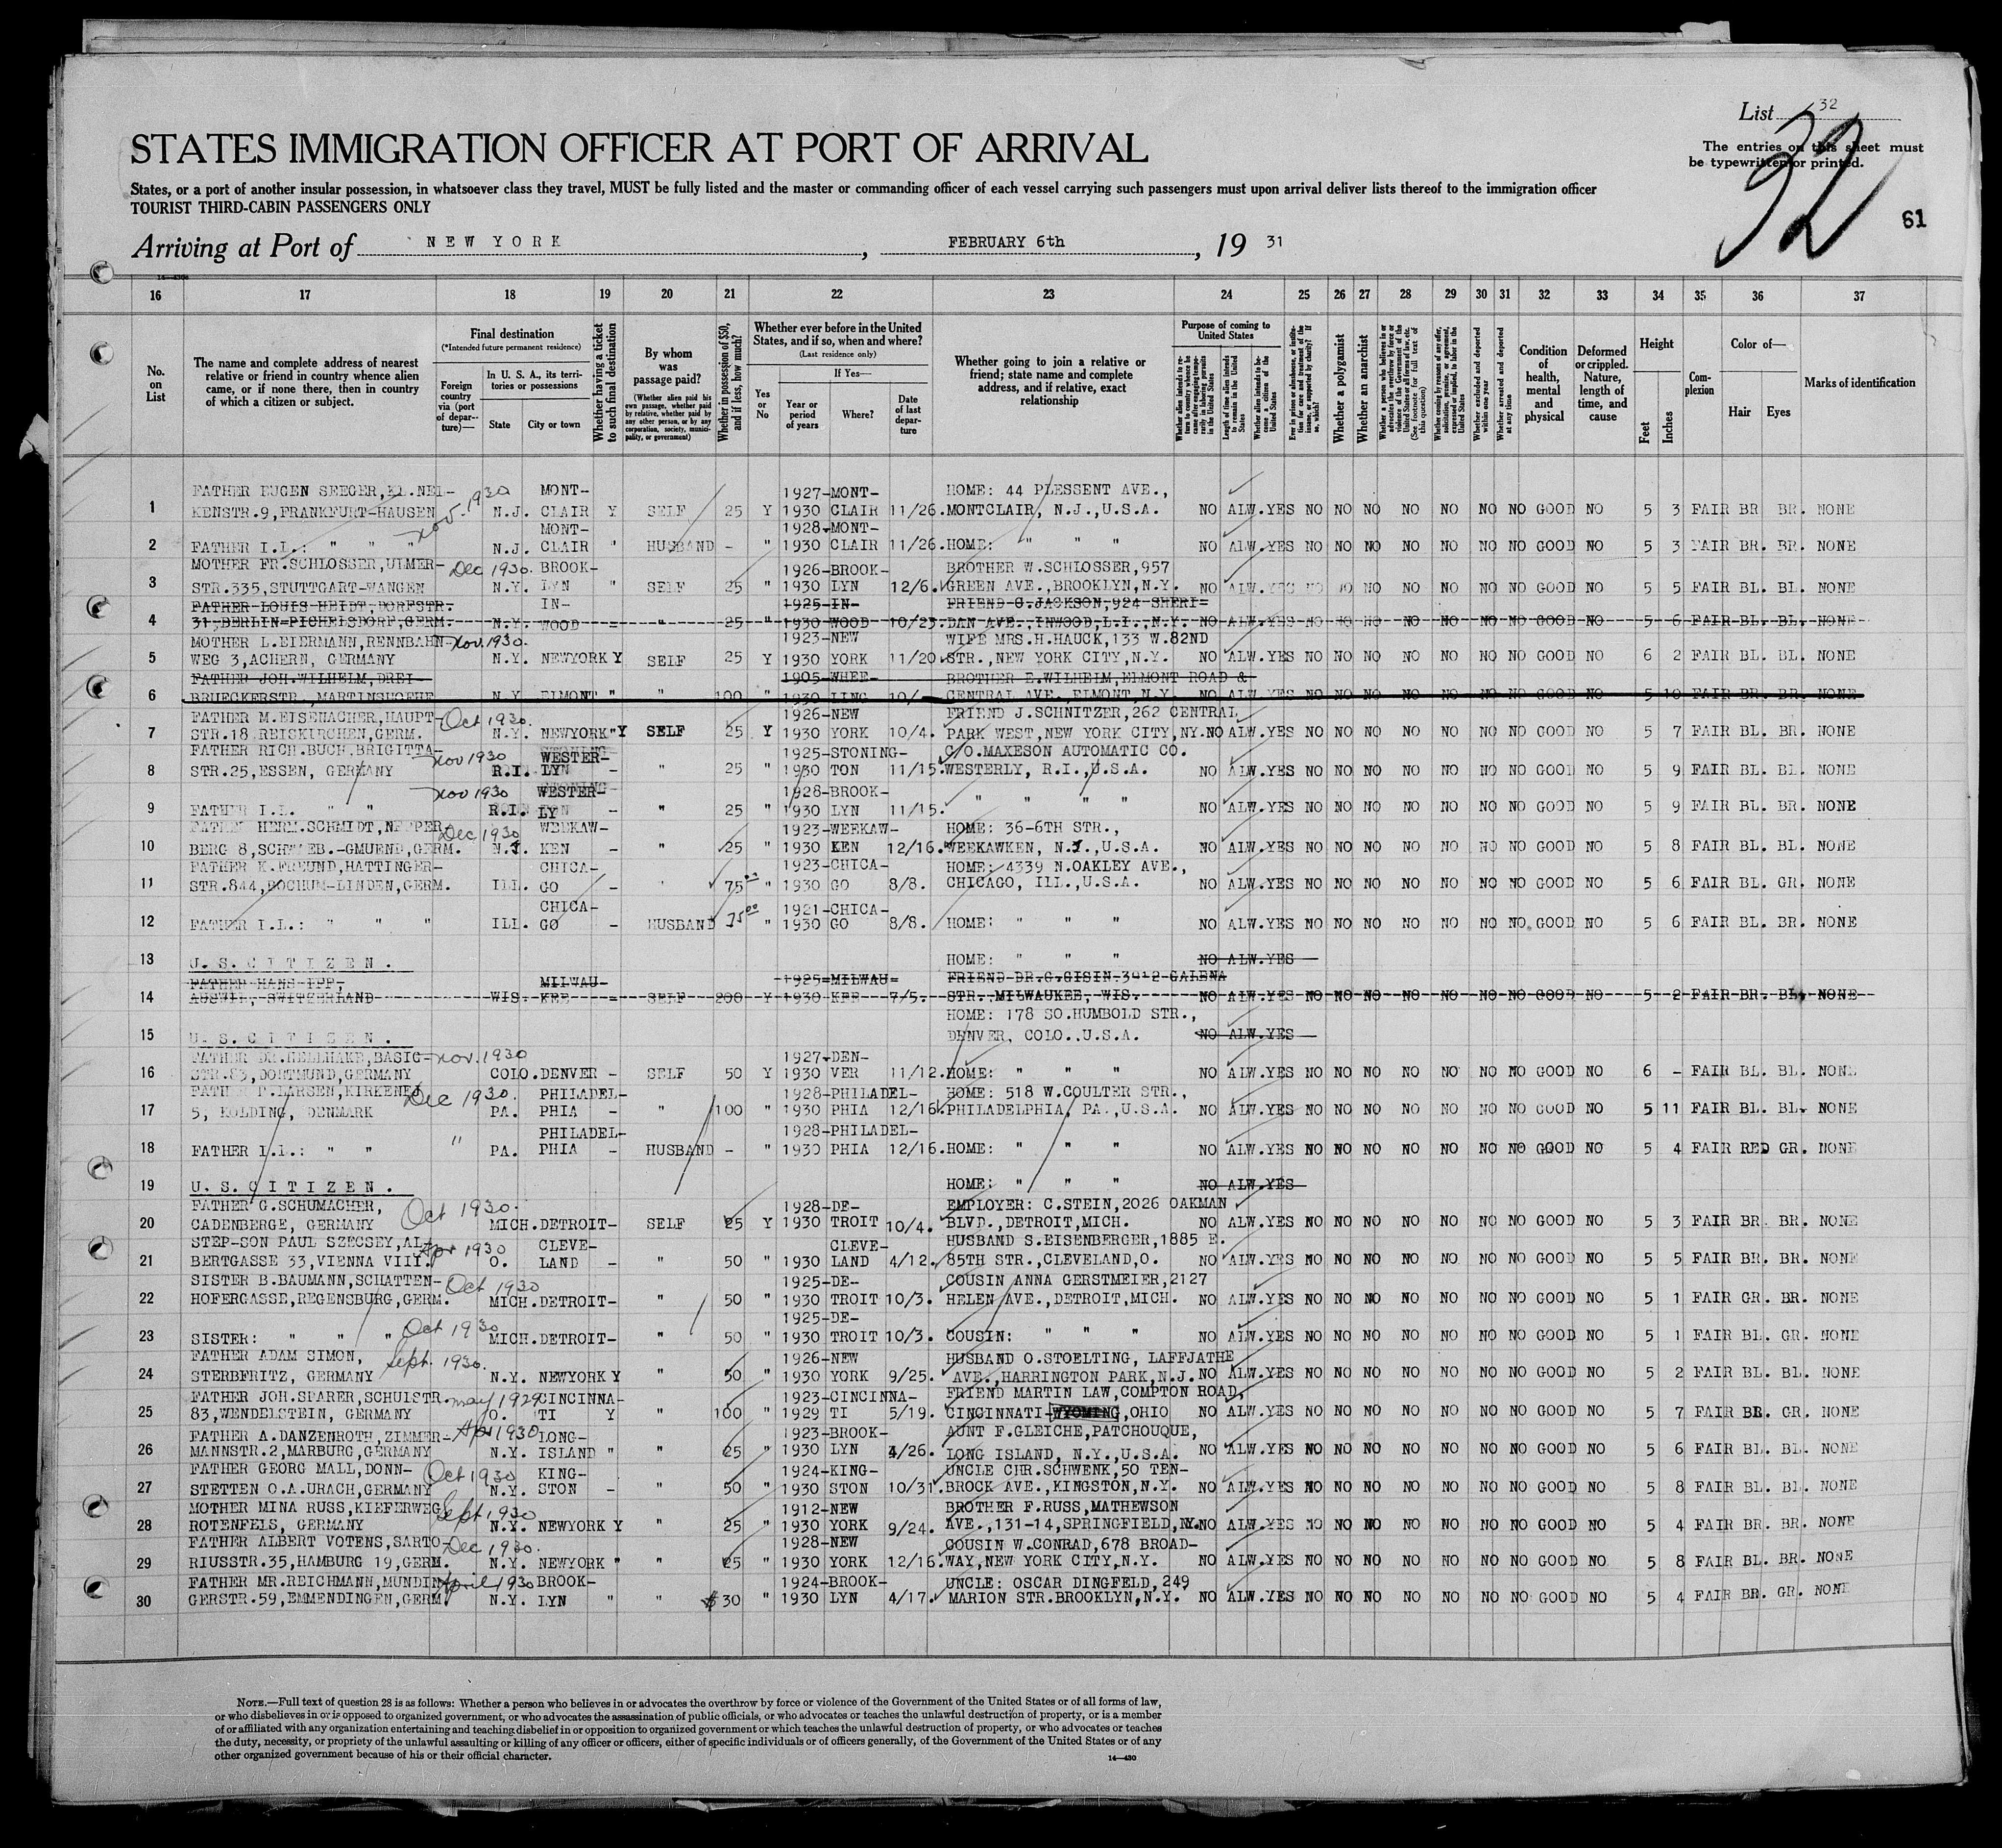 List 32
32
The entries on this sheet must
be typewritten or printed.
61
STATES IMMIGRATION OFFICER AT PORT OF ARRIVAL
States, or a port of another insular possession, in whatsoever class they travel, MUST be fully listed and the master or commanding officer of each vessel carrying such passengers must upon arrival deliver lists thereof to the immigration officer
TOURIST THIRD-CABIN PASSENGERS ONLY
Arriving at Port of NEW YORK, FEBRUARY 6th, 19 31
16 17 18 19 20 21 22 23 24 25 26 27 28 29 30 31 32 33 34 35 36 37
No. on List
The name and complete address of nearest relative or friend in country whence alien came, or if none there, then in country of which a citizen or subject.
Final destination
(*Intended future permanent residence)
Foreign country via (port of departure)—
In U. S. A., its territories or possessions
State
City or town
Whether having a ticket to such final destination
By whom was passage paid?
(Whether alien paid his own passage, whether paid by relative, whether paid by any other person, or by any corporation, society, municipality, or government)
Whether in possession of $50, and if less, how much?
Whether ever before in the United States, and if so, when and where?
(Last residence only)
Yes or No
If Yes—
Year or period of years
Where?
Date of last departure
Whether going to join a relative or friend; state name and complete address, and if relative, exact relationship
Purpose of coming to United States
Length of time alien intends to remain in the United States
Whether alien intends to become a citizen of the United States
Whether a polygamist
Whether an anarchist
Whether excluded and deported within one year
Whether arrested and deported at any time
Condition of health, mental and physical
Deformed or crippled. Nature, length of time, and cause
Height
Feet
Inches
Complexion
Color of—
Hair
Eyes
Marks of identification
FATHER EUGEN SEEGER, KL.NEI- Nov. 1930 MONT- 1927-MONT- HOME: 44 PLESSENT AVE.,
1 KENSTR.9,FRANKFURT-HAUSEN N.J. CLAIR Y SELF 25 Y 1930 CLAIR 11/26. MONTCLAIR, N.J.,U.S.A. NO ALW.YES NO NO NO NO NO NO NO GOOD NO 5 3 FAIR BR BR. NONE
MONT- 1928-MONT-
2 FATHER I.I.: " " " N.J. CLAIR " HUSBAND - " 1930 CLAIR 11/26. HOME: " " " NO ALW.YES NO NO NO NO NO NO NO GOOD NO 5 3 FAIR BR. BR. NONE
MOTHER FR.SCHLOSSER,ULMER- Dec 1930. BROOK- 1926-BROOK- BROTHER W.SCHLOSSER,957
3 STR.335,STUTTGART-WANGEN N.Y. LYN " SELF 25 " 1930 LYN 12/6. GREEN AVE.,BROOKLYN,N.Y. NO ALW.YES NO NO NO NO NO NO NO GOOD NO 5 5 FAIR BL. BL. NONE
FATHER LOUIS HEIDT,DORFSTR. IN- 1925-IN- FRIEND G.JACKSON,924 SHERI-
4 31,BERLIN-PICHELSDORF,GERM. N.Y. WOOD - " 25 " 1930 WOOD 10/23. DAN AVE.,INWOOD,L.I.,N.Y. NO ALW.YES NO NO NO NO NO NO NO GOOD NO 5 6 FAIR BL. BL. NONE
MOTHER L.EIERMANN,RENNBAHN- Nov. 1930. 1923-NEW WIFE MRS.H.HAUCK,133 W.82ND
5 WEG 3,ACHERN, GERMANY N.Y. NEWYORK Y SELF 25 Y 1930 YORK 11/20. STR.,NEW YORK CITY,N.Y. NO ALW.YES NO NO NO NO NO NO NO GOOD NO 6 2 FAIR BL. BL. NONE
FATHER JOH.WILHELM,DREI- 1905-WHEE- BROTHER E.WILHELM,ELMONT ROAD &
6 BRUECKERSTR.,MARTINSHOEHE N.Y. ELMONT " " 100 " 1930 LING 10/ CENTRAL AVE. ELMONT,N.Y. NO ALW.YES NO NO NO NO NO NO NO GOOD NO 5 10 FAIR BR. BR. NONE
FATHER M.EISENACHER,HAUPT- Oct 1930. 1926-NEW FRIEND J.SCHNITZER,262 CENTRAL
7 STR.18 REISKIRCHEN,GERM. N.Y. NEWYORK"Y SELF 25 Y 1930 YORK 10/4. PARK WEST,NEW YORK CITY,NY. NO ALW.YES NO NO NO NO NO NO NO GOOD NO 5 7 FAIR BL. BR. NONE
FATHER RICH.BUCH,BRIGITTA- Nov 1930 WESTER- 1925-STONING- C/O.MAXESON AUTOMATIC CO.
8 STR.25,ESSEN, GERMANY R.I. LYN - " 25 " 1930 TON 11/15. WESTERLY, R.I.,U.S.A. NO ALW.YES NO NO NO NO NO NO NO GOOD NO 5 9 FAIR BL. BL. NONE
Nov 1930 WESTER- 1928-BROOK-
9 FATHER I.I. " " R.I. LY - " 25 " 1930 LYN 11/15. " " " " NO ALW.YES NO NO NO NO NO NO NO GOOD NO 5 9 FAIR BL. BR. NONE
FATHER HERM.SCHMIDT,NEPPER- Dec 1930 WEEKAW- 1923-WEEKAW- HOME: 36-6TH STR.,
10 BERG 8,SCHWAEB.-GMUEND,GERM. N.J. KEN - " 25 " 1930 KEN 12/16. WEEKAWKEN, N.J.,U.S.A. NO ALW.YES NO NO NO NO NO NO NO GOOD NO 5 8 FAIR BL. BL. NONE
FATHER K.FREUND,HATTINGER- CHICA- 1923-CHICA- HOME: 4339 N.OAKLEY AVE.,
11 STR.844,BOCHUM-LINDEN,GERM. ILL. GO - " 75.00 " 1930 GO 8/8. CHICAGO, ILL.,U.S.A. NO ALW.YES NO NO NO NO NO NO NO GOOD NO 5 6 FAIR BL. GR. NONE
CHICA- 1921-CHICA-
12 FATHER I.I.: " " " ILL. GO - HUSBAND 75.00 " 1930 GO 8/8. HOME: " " " NO ALW.YES NO NO NO NO NO NO NO GOOD NO 5 6 FAIR BL. BR. NONE
13 U.S.CITIZEN. HOME: " " " NO ALW.YES
FATHER HANS IPP, MILWAU- 1925-MILWAU- FRIEND DR.G.GISIN.3912 GALENA
14 AUSWIL, SWITZERLAND WIS. KEE - SELF 200 Y 1930 KEE 7/5. STR. MILWAUKEE, WIS. NO ALW.YES NO NO NO NO NO NO NO GOOD NO 5 2 FAIR BR. BL. NONE
HOME: 178 SO.HUMBOLD STR.,
15 U.S.CITIZEN. DENVER, COLO..U.S.A. NO ALW.YES
FATHER DR.HELLHAKE,BASIG- Nov. 1930 1927-DEN-
16 STR.83,DORTMUND,GERMANY COLO. DENVER - SELF 50 Y 1930 VER 11/12. HOME: " " " NO ALW.YES NO NO NO NO NO NO NO GOOD NO 6 - FAIR BL. BL. NONE
FATHER P.LARSEN,KIRKENEJ Dec 1930. PHILADEL- 1928-PHILADEL- HOME: 518 W.COULTER STR.,
17 5, KOLDING, DENMARK PA. PHIA - " 100 " 1930 PHIA 12/16. PHILADELPHIA, PA.,U.S.A. NO ALW.YES NO NO NO NO NO NO NO GOOD NO 5 11 FAIR BL. BL. NONE
PHILADEL- 1928-PHILADEL-
18 FATHER I.I.: " " " PA. PHIA - HUSBAND - " 1930 PHIA 12/16. HOME: " " " NO ALW.YES NO NO NO NO NO NO NO GOOD NO 5 4 FAIR RED GR. NONE
19 U.S.CITIZEN. HOME: " " " NO ALW.YES
FATHER G.SCHUMACHER, Oct 1930. 1928-DE- EMPLOYER: C.STEIN,2026 OAKMAN
20 CADENBERGE, GERMANY MICH. DETROIT- SELF 25 Y 1930 TROIT 10/4. BLVD.,DETROIT,MICH. NO ALW.YES NO NO NO NO NO NO NO GOOD NO 5 3 FAIR BR. BR. NONE
STEP-SON PAUL SZECSEY,AL- Apr 1930 CLEVE- CLEVE- HUSBAND S.EISENBERGER,1885 E.
21 BERTGASSE 33,VIENNA VIII. O. LAND - " 50 " 1930 LAND 4/12. 85TH STR.,CLEVELAND,O. NO ALW.YES NO NO NO NO NO NO NO GOOD NO 5 5 FAIR BR. BR. NONE
SISTER B.BAUMANN,SCHATTEN- Oct 1930 1925-DE- COUSIN ANNA GERSTMEIER,2127
22 HOFERGASSE,REGENSBURG,GERM. MICH. DETROIT- " 50 " 1930 TROIT 10/3. HELEN AVE.,DETROIT,MICH. NO ALW.YES NO NO NO NO NO NO NO GOOD NO 5 1 FAIR GR. BR. NONE
Oct 1930 1925-DE-
23 SISTER: " " " MICH. DETROIT- " 50 " 1930 TROIT 10/3. COUSIN: " " " NO ALW.YES NO NO NO NO NO NO NO GOOD NO 5 1 FAIR BL. GR. NONE
FATHER ADAM SIMON, Sept. 1930. 1926-NEW HUSBAND O.STOELTING, LAFFJATHE
24 STERBFRITZ, GERMANY N.Y. NEWYORK Y " 50 " 1930 YORK 9/25. AVE.,HARRINGTON PARK,N.J. NO ALW.YES NO NO NO NO NO NO NO GOOD NO 5 2 FAIR BL. BL. NONE
FATHER JOH.SPARER,SCHULSTR. May 1929 CINCINNA- 1923-CINCINNA- FRIEND MARTIN LAW,COMPTON ROAD,
25 83,WENDELSTEIN, GERMANY O. TI Y " 100 " 1929 TI 5/19. CINCINNATI-WYOMING,OHIO NO ALW.YES NO NO NO NO NO NO NO GOOD NO 5 7 FAIR BR. GR. NONE
FATHER A.DANZENROTH,ZIMMER- Apr 1930 LONG- 1923-BROOK- AUNT F.GLEICHE,PATCHOUQUE,
26 MANNSTR.2,MARBURG,GERMANY N.Y. ISLAND " " 25 " 1930 LYN 4/26. LONG ISLAND, N.Y.,U.S.A. NO ALW.YES NO NO NO NO NO NO NO GOOD NO 5 6 FAIR BL. BL. NONE
FATHER GEORG MALL,DONN- Oct 1930 KING- 1924-KING- UNCLE CHR.SCHWENK,50 TEN-
27 STETTEN O.A.URACH,GERMANY N.Y. STON - " 50 " 1930 STON 10/31. BROCK AVE.,KINGSTON,N.Y. NO ALW.YES NO NO NO NO NO NO NO GOOD NO 5 8 FAIR BL. BL. NONE
MOTHER MINA RUSS,KIEFERWEG Sept 1930 1912-NEW BROTHER F.RUSS,MATHEWSON
28 ROTENFELS, GERMANY N.Y. NEWYORK Y " 25 " 1930 YORK 9/24. AVE.,131-14,SPRINGFIELD,NY. NO ALW.YES NO NO NO NO NO NO NO GOOD NO 5 4 FAIR BR. BR. NONE
FATHER ALBERT VOTENS,SARTO- Dec 1930. 1928-NEW COUSIN W.CONRAD,678 BROAD-
29 RIUSSTR.35,HAMBURG 19,GERM. N.Y. NEWYORK " " 25 " 1930 YORK 12/16. WAY,NEW YORK CITY,N.Y. NO ALW.YES NO NO NO NO NO NO NO GOOD NO 5 8 FAIR BL. BR. NONE
FATHER MR.REICHMANN,MUNDIN April 1930 BROOK- 1924-BROOK- UNCLE: OSCAR DINGFELD,249
30 GERSTR.59,EMMENDINGEN,GERM. N.Y. LYN " " $ 30 " 1930 LYN 4/17. MARION STR.BROOKLYN,N.Y. NO ALW.YES NO NO NO NO NO NO NO GOOD NO 5 4 FAIR BR. GR. NONE
NOTE.—Full text of question 28 is as follows: Whether a person who believes in or advocates the overthrow by force or violence of the Government of the United States or of all forms of law,
or who disbelieves in or is opposed to organized government, or who advocates the assassination of public officials, or who advocates or teaches the unlawful destruction of property, or is a member
of or affiliated with any organization entertaining and teaching disbelief in or opposition to organized government or which teaches the unlawful destruction of property, or who advocates or teaches
the duty, necessity, or propriety of the unlawful assaulting or killing of any officer or officers, either of specific individuals or of officers generally, of the Government of the United States or of any
other organized government because of his or their official character.
14—430